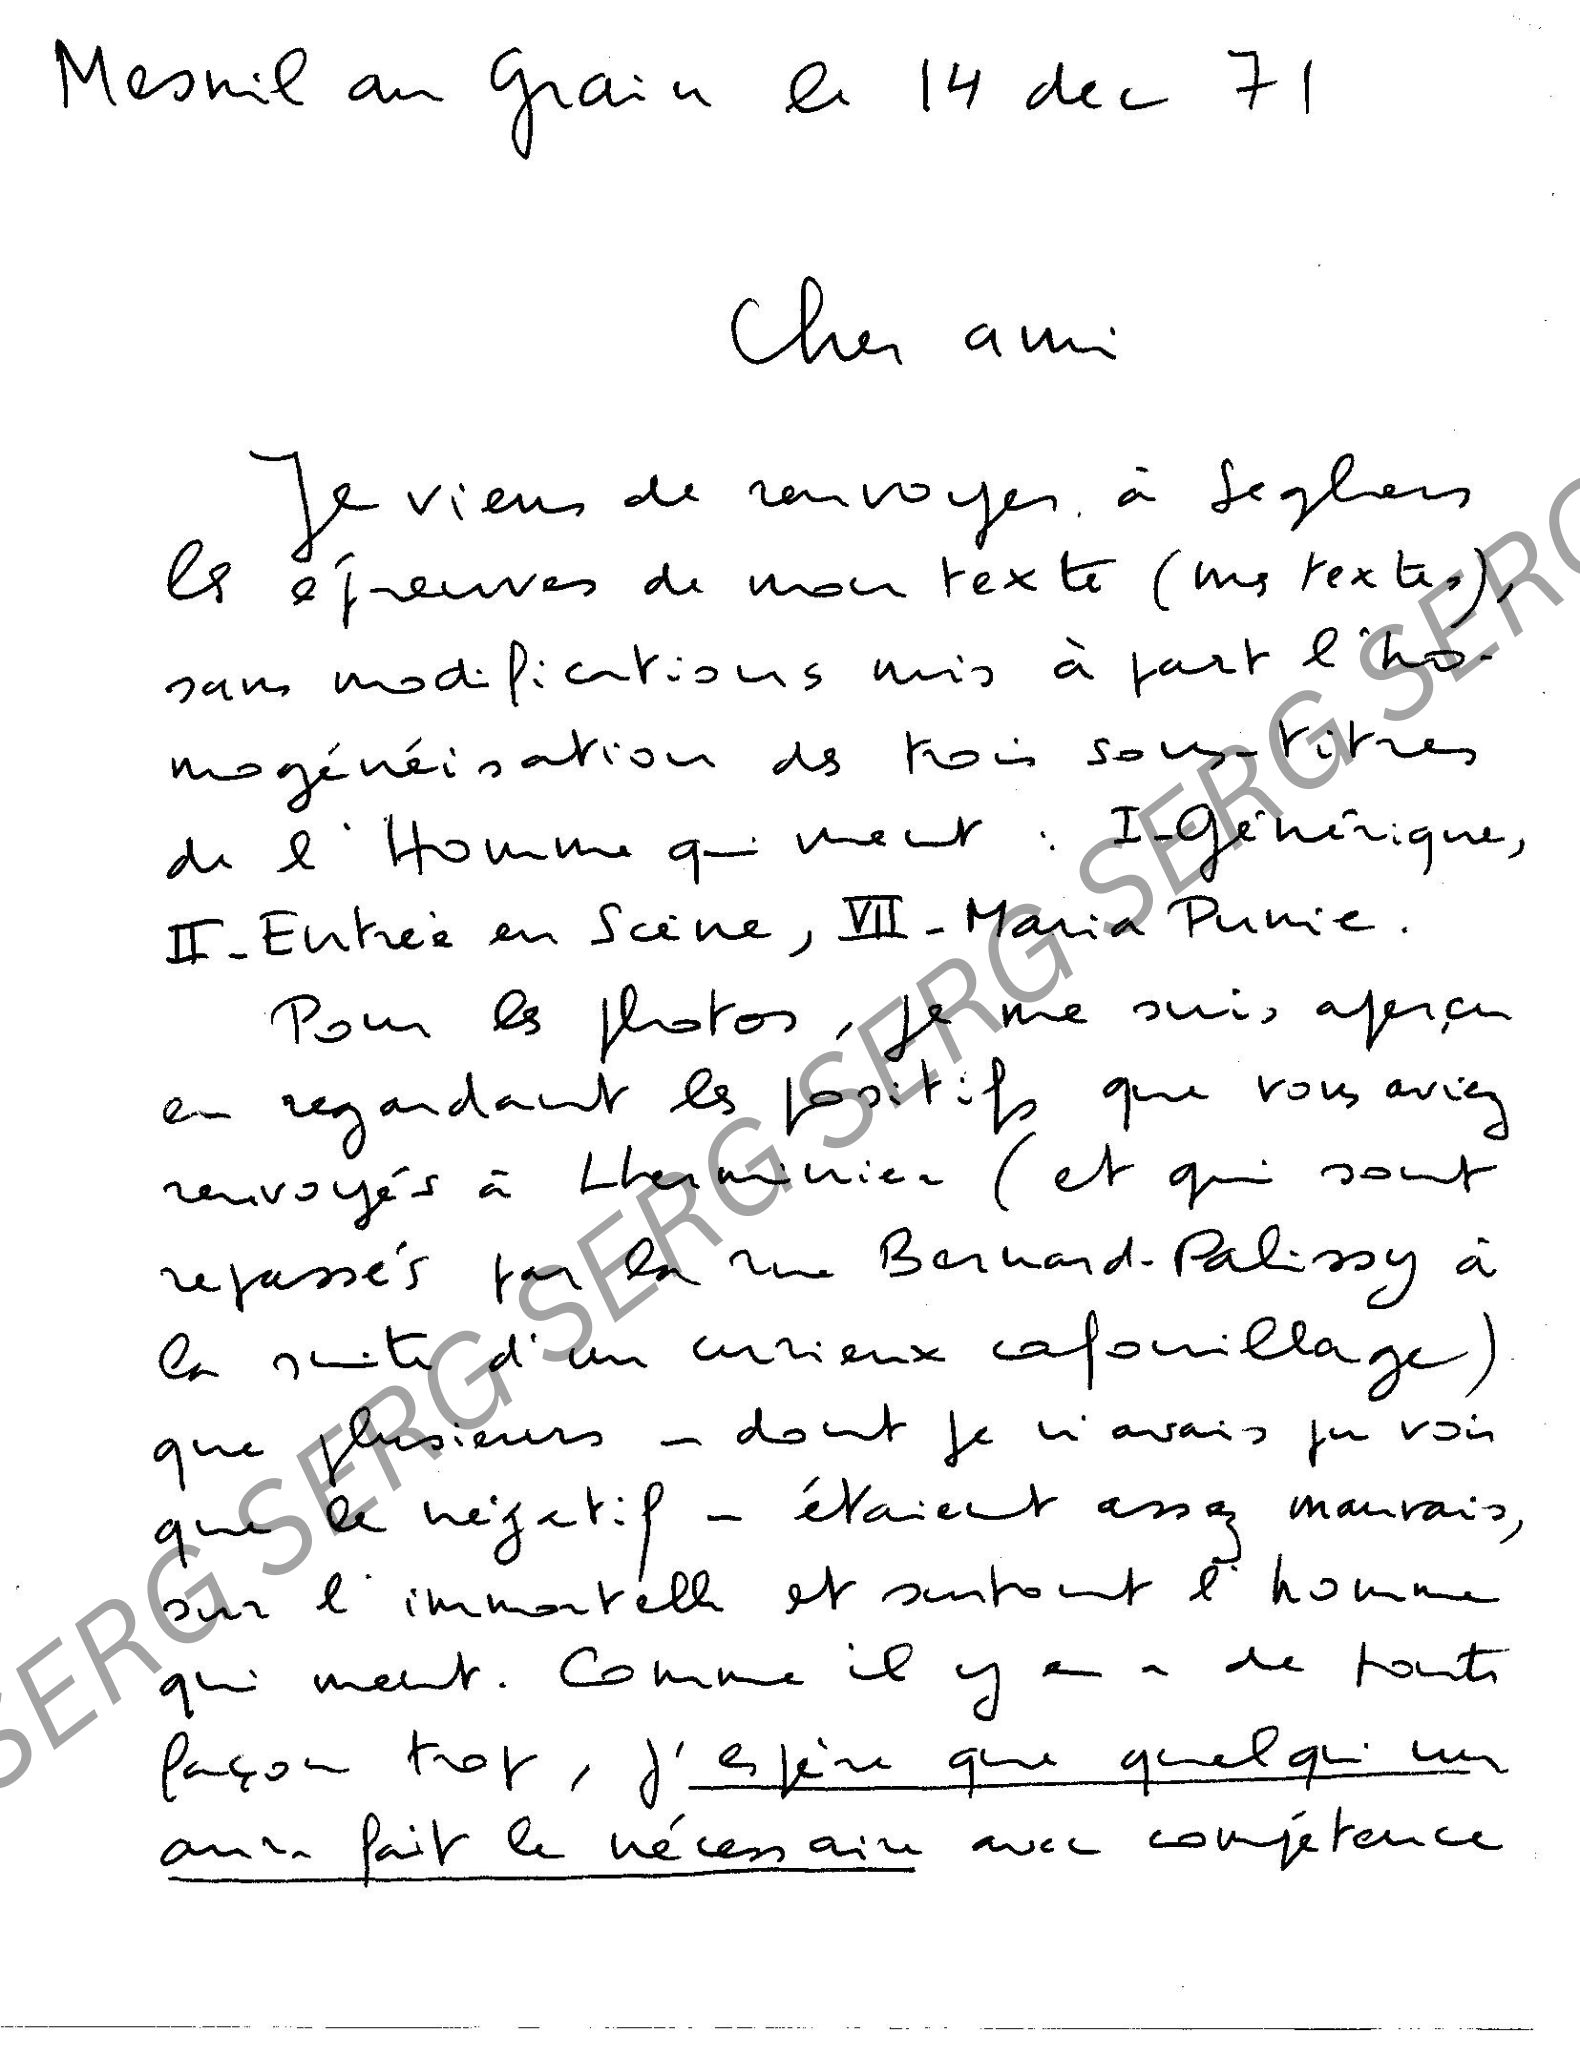 Mesnil au Grain le 14 dec 71
Cher ami
Je viens de renvoyer à Seghers
les épreuves de mon texte (mes textes),
sans modifications mis à part l'ho-
mogénéisation des trois sous-titres
de l'Homme qui ment : I-Générique,
II-Entrée en Scène, VII-Maria Punie.
Pour les photos, je me suis aperçu
en regardant les positifs que vous aviez
renvoyés à Lherminier (et qui sont
repassés par la rue Bernard-Palissy à
la suite d'un curieux cafouillage)
que plusieurs - dont je n'avais pu voir
que le négatif - étaient assez mauvais,
sur l'immortelle et surtout l'homme
qui ment. Comme il y en a de toute
façon trop, j'espère que quelqu'un
aura fait le nécessaire avec compétence
SERG SERG SERG SERG SERG SERG SERG SERG SERG